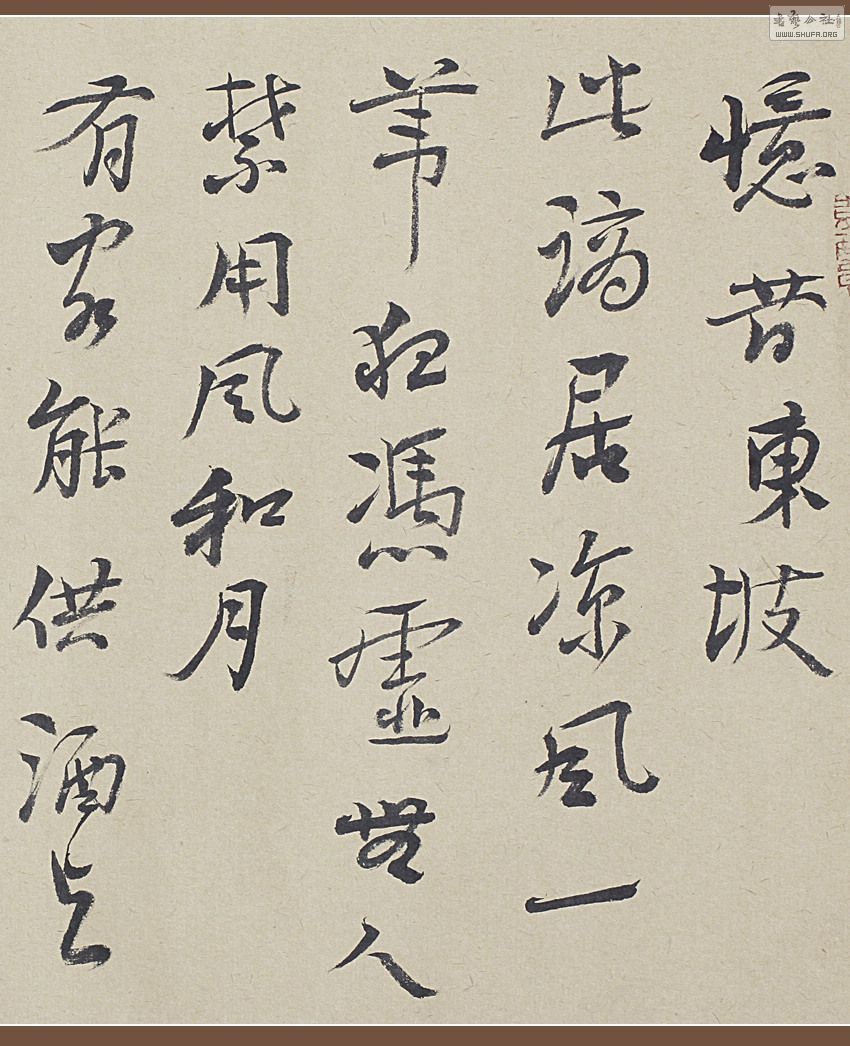 憶昔東坡
此謫居涼風一
葦独憑虛無人
禁用風和月
有客能供酒与
書藝公社
WWW.SHUFA.ORG